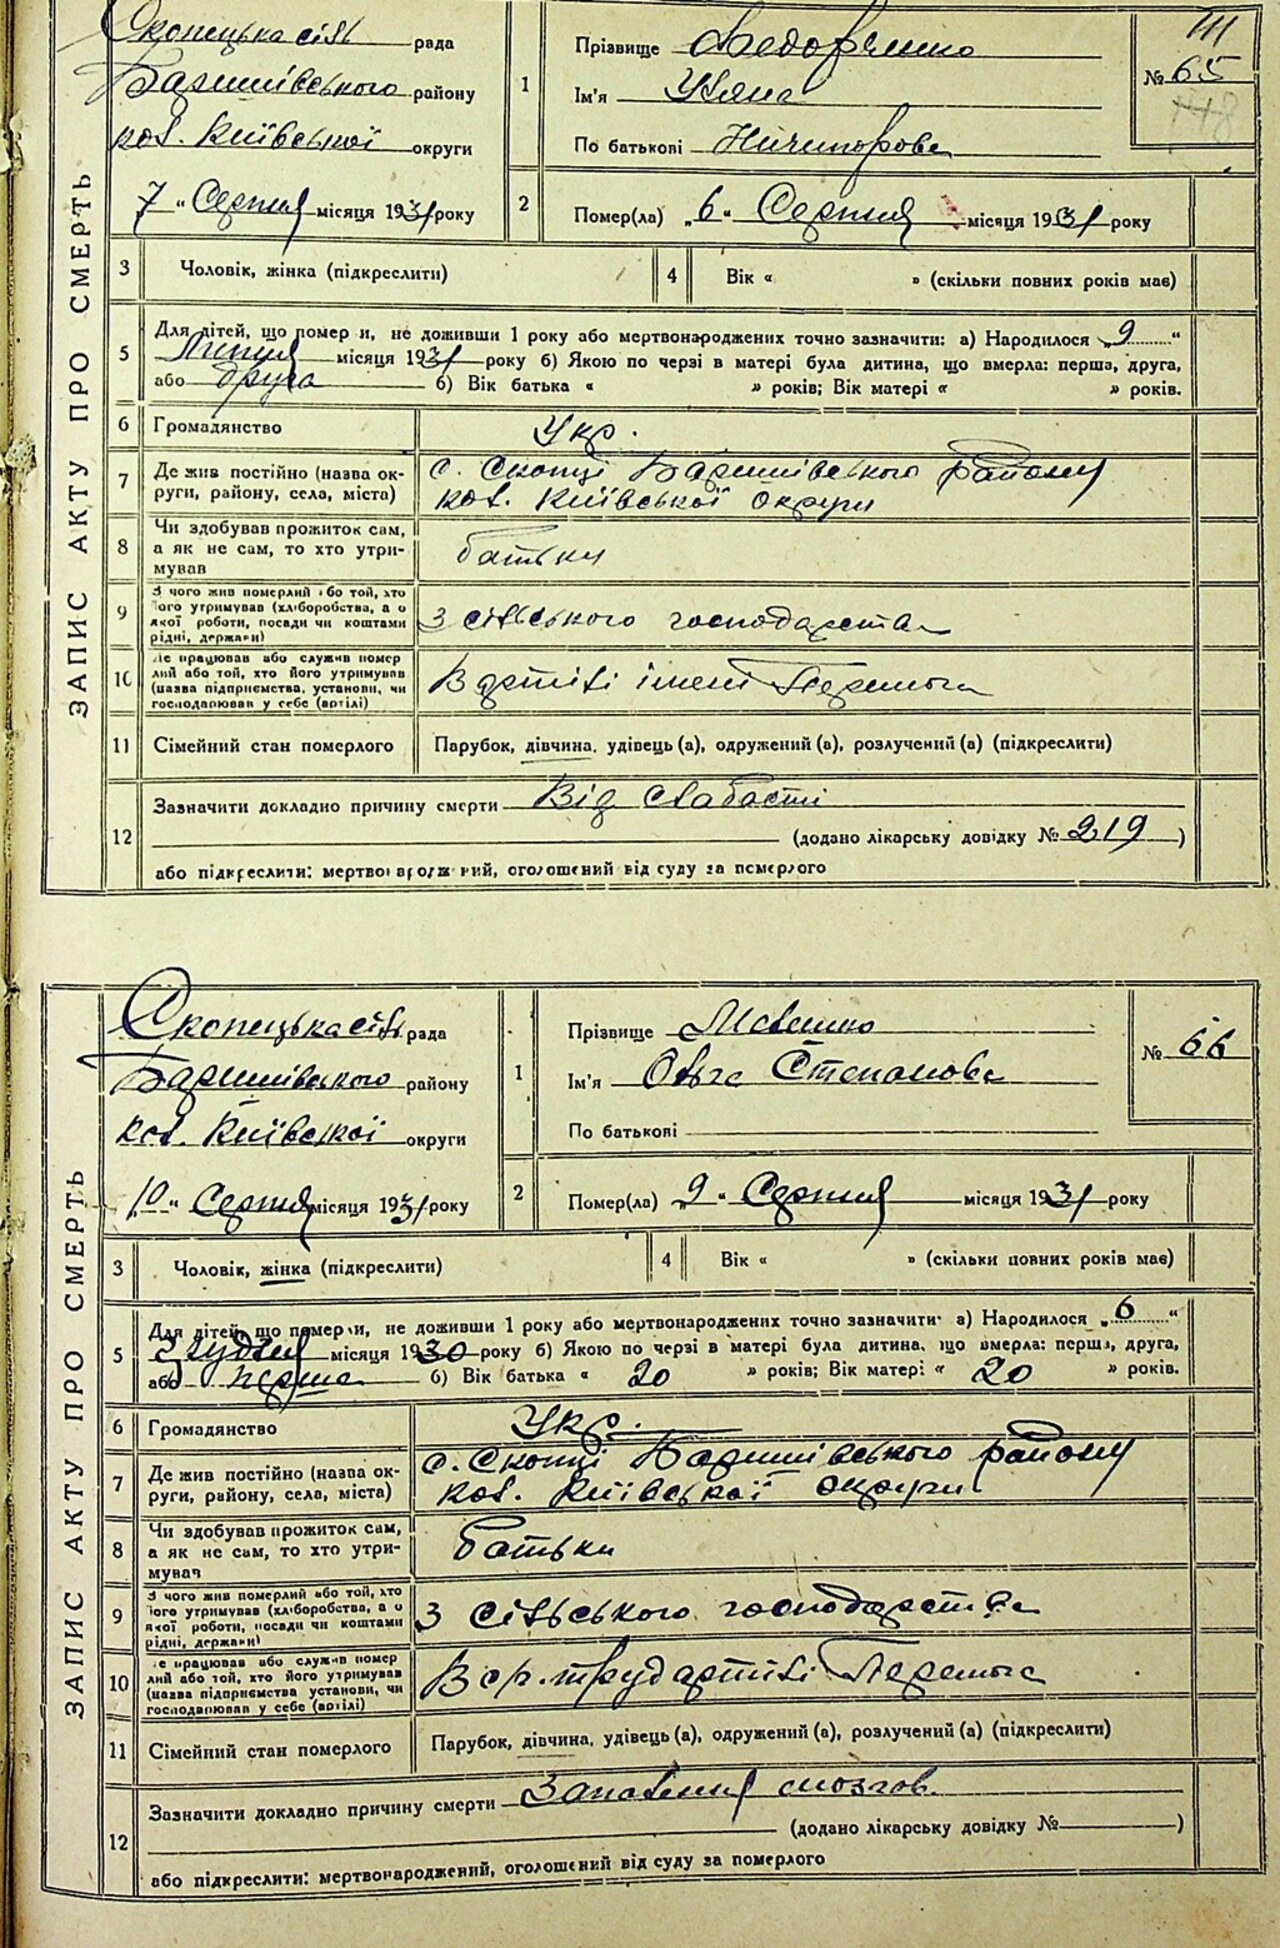 ЗАПИС АКТУ ПРО СМЕРТЬ
Скопецька сіль рада
Баришівського району
кол. Київської округи
7 " Серпня місяця 1931 року
1
Прізвище Федорченко
Ім'я Уляна
По батькові Ничипорова
III
№ 65
148
2
Помер(ла) „6" Серпня місяця 1931 року
3
Чоловік, жінка (підкреслити)
4
Вік « » (скільки повних років має)
5
Для дітей, що померли, не доживши 1 року або мертвонароджених точно зазначити: а) Народилося „9"
Липня місяця 1931 року б) Якою по черзі в матері була дитина, що вмерла: перша, друга,
або друга б) Вік батька « » років; Вік матері « » років.
6
Громадянство
Укр.
7
Де жив постійно (назва округи, району, села, міста)
с. Скопці Баришівського району
кол. Київської округи
8
Чи здобував прожиток сам,
а як не сам, то хто утримував
батьки
9
З чого жив померлий або той, хто
його утримував (хліборобства, а о
якої роботи, посади чи коштами
рідні, держави)
З сільського господарства
10
Де працював або служив помер
лий або той, хто його утримував
(назва підприємства, установи, чи
господарював у себе (артілі)
В артілі імені Перемога
11
Сімейний стан померлого
Парубок, дівчина, удівець (а), одружений (а), розлучений (а) (підкреслити)
12
Зазначити докладно причину смерти Від слабасті
(додано лікарську довідку № 219 )
або підкреслити: мертвонароджений, оголошений від суду за померлого
ЗАПИС АКТУ ПРО СМЕРТЬ
Скопецька сіль рада
Баришівського району
кол. Київської округи
„10" Серпня місяця 1931 року
1
Прізвище
Ім'я Ольга Степанова
По батькові
№ 66
2
Помер(ла) „9" Серпня місяця 1931 року
3
Чоловік, жінка (підкреслити)
4
Вік « » (скільки повних років має)
5
Для дітей, що померли, не доживши 1 року або мертвонароджених точно зазначити: а) Народилося „6"
Грудня місяця 1930 року б) Якою по черзі в матері була дитина, що вмерла: перша, друга,
або перша б) Вік батька « 20 » років; Вік матері « 20 » років.
6
Громадянство
Укр.
7
Де жив постійно (назва округи, району, села, міста)
с. Скопці Баришівського району
кол. Київської округи
8
Чи здобував прожиток сам,
а як не сам, то хто утримував
батьки
9
З чого жив померлий або той, хто
його утримував (хліборобства, а о
якої роботи, посади чи коштами
рідні, держави)
З сільського господарства
10
Де працював або служив помер
лий або той, хто його утримував
(назва підприємства установи, чи
господарював у себе (артілі)
В с/г. трудартілі Перемога
11
Сімейний стан померлого
Парубок, дівчина, удівець (а), одружений (а), розлучений (а) (підкреслити)
12
Зазначити докладно причину смерти Запаления мозгов.
(додано лікарську довідку № )
або підкреслити: мертвонароджений, оголошений від суду за померлого